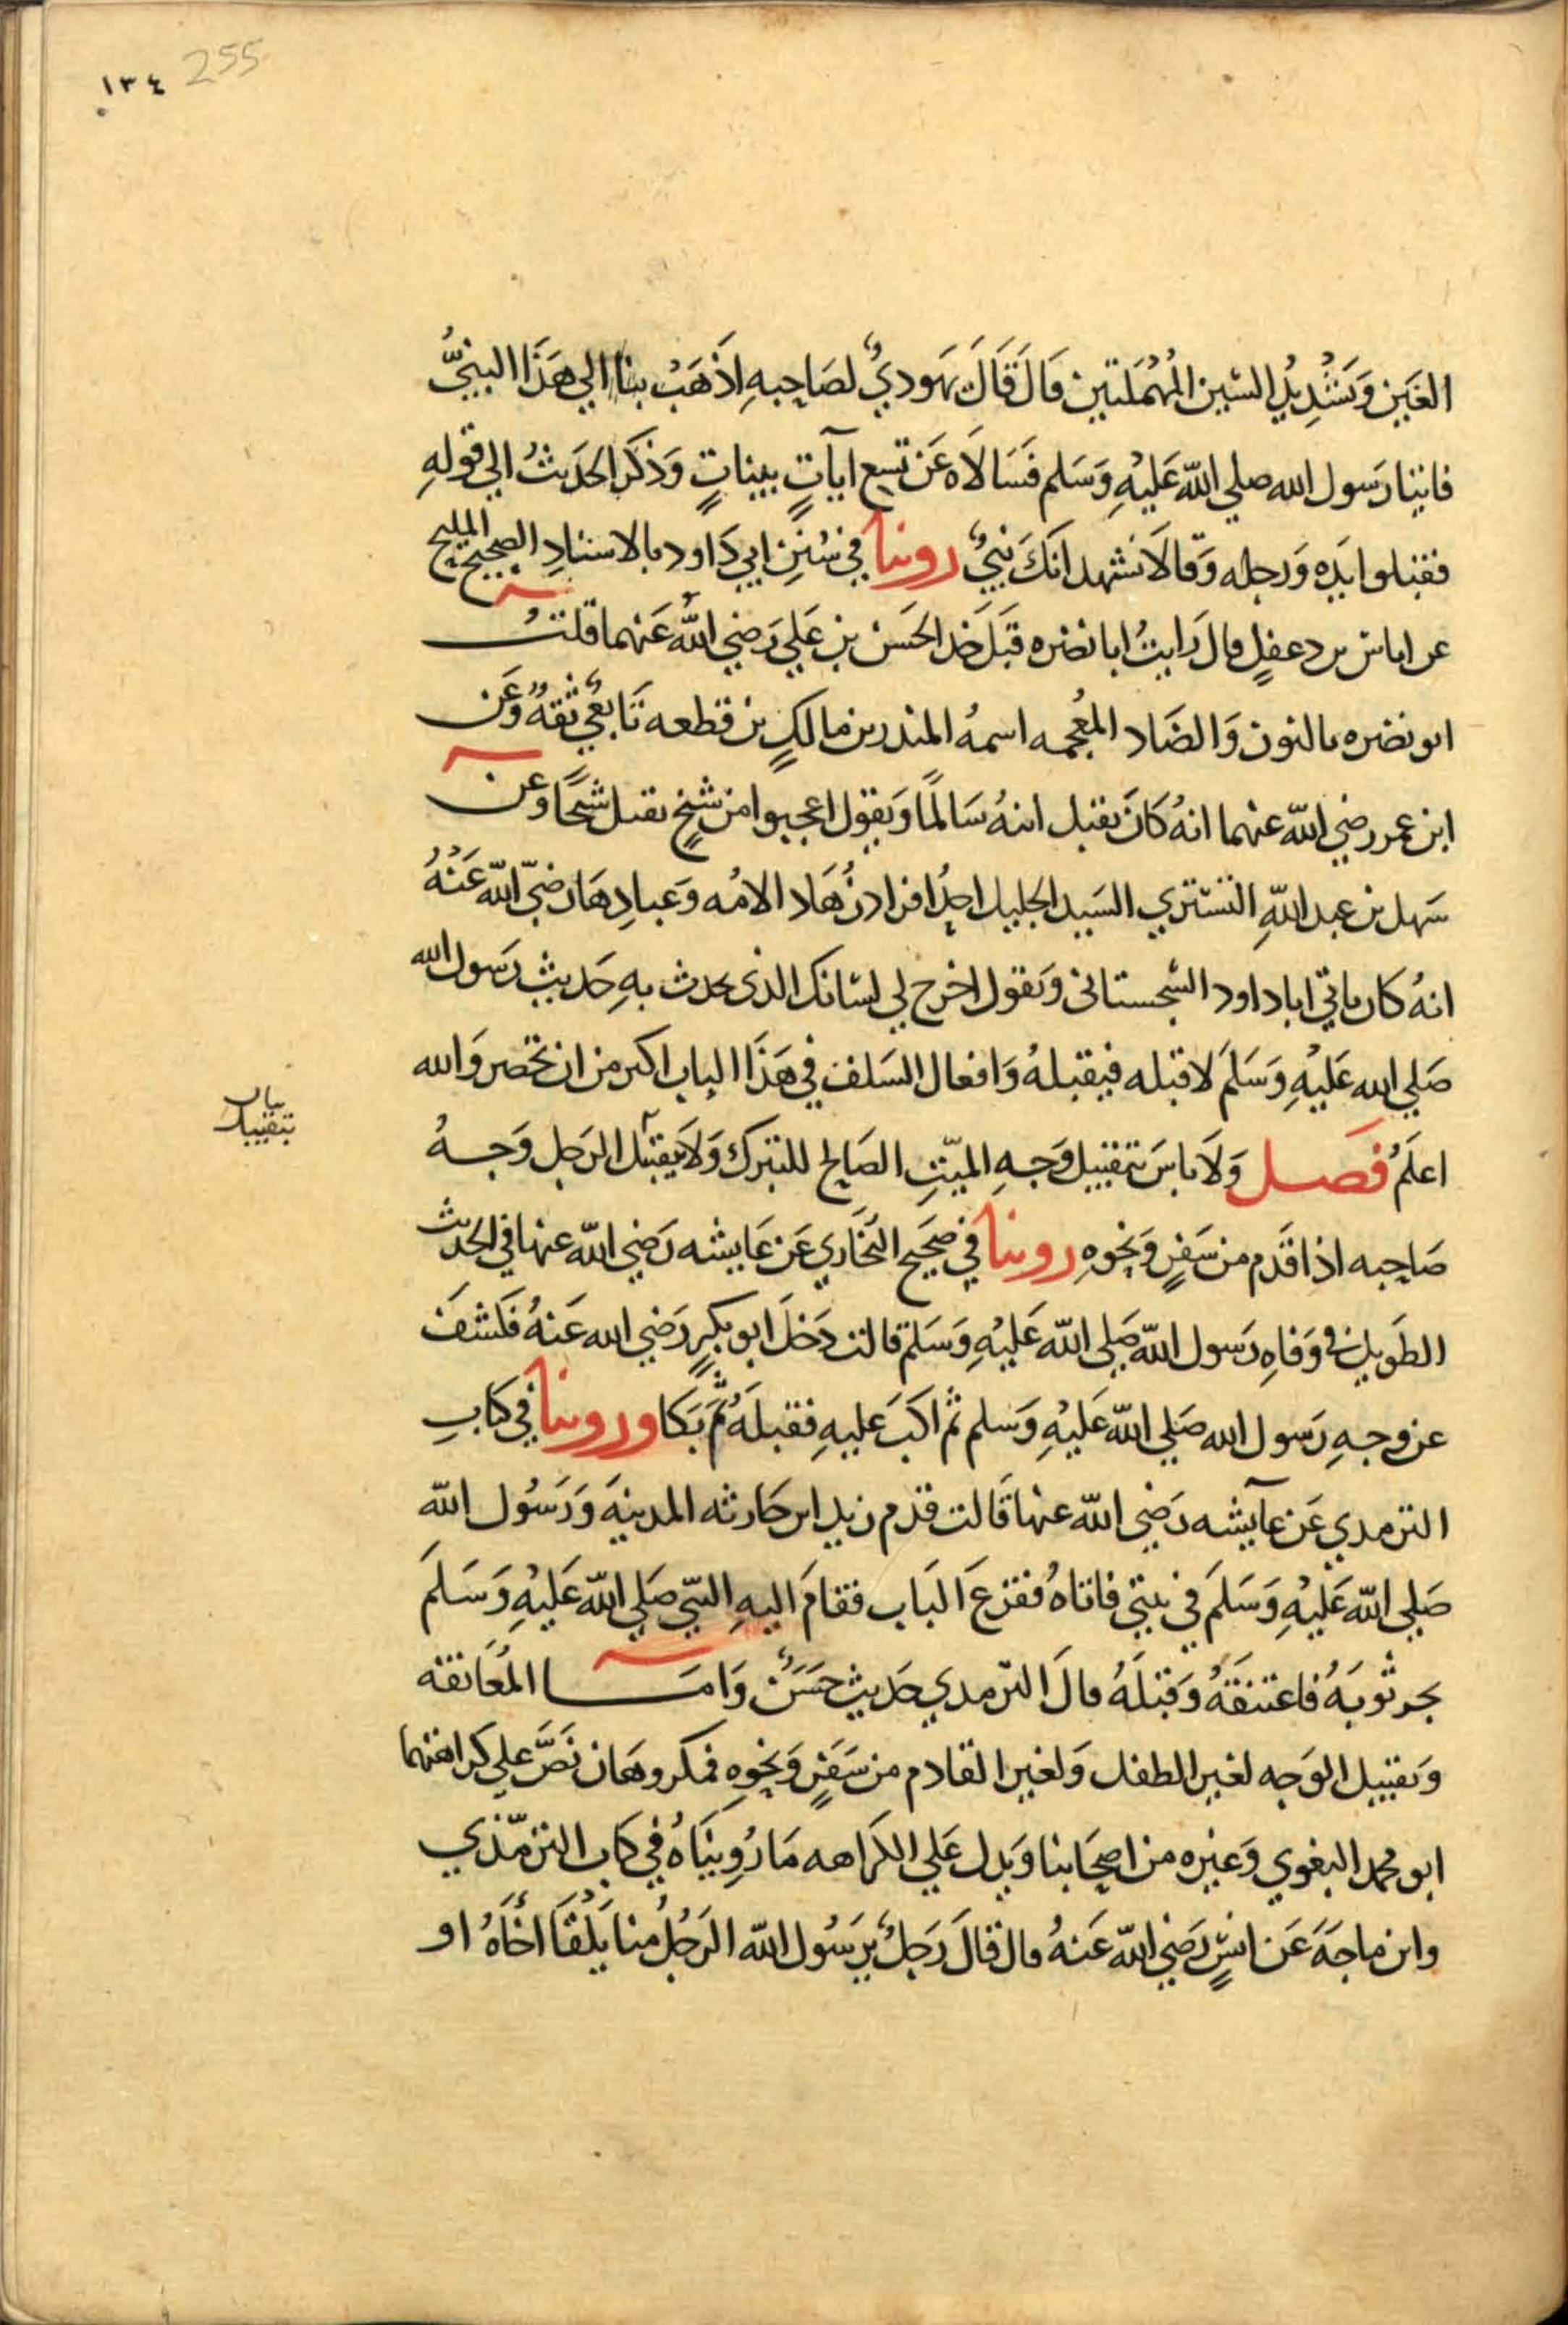 ١٣٤ 255
العَين وَتَشْدِيدُ السّين المُهْمَلتين قَالَ قَالَ يَهودِيٌ لصَاحِبهِ اذَهَبْ بنا الي هَذَا النبيُّ
فاتيَا رَسول الله صلي الله عَليْهِ وَسَلم فَسَالَاه عَن تسِع ايآتٍ بيناتٍ وَذكَر الحَديثُ الي قولهِ
فقبلوا يَدِه وَرجله وَقالَا نَشهد انكَ نَبيٌ روينا في سُنَنِ ابي دَاود بالاسنادِ الصحيح المليح
عن اياس بن دعفلٍ قال رَايتُ ابا نضره قبَل خَد الحَسَن بن عَلي رَضي اللهُ عَنهما قلتُ
ابو نضره بالنون وَالضَاد المعُجمه اسمهُ المنذر بن مالكٍ بن قطعه تَابعيٌ ثقهٌ وَعَن
ابن عمر رضي الله عنهما انهُ كَانَ يقبل ابنهُ سَالمًا وَيقول اعجبوا من شَيخٍ يقبل شيخًا وعن
سَهل بن عبد اللهِ التستري السَيد الجليل احدُ افراد زُهَاد الامُه وَعبادِهَا رَضيَ الله عَنْهُ
انهُ كان ياتي ابا داود السّجستاني وَيقول اخرج لي لسَانك الذي يحدث بهِ حَديث رَسول الله
صَلي الله عَليْهِ وَسَلمَ لاقبله فيقبلهُ وَافعال السَلف في هَذَا الباب اكثر من ان تحصر وَالله
اعلَمُ فَصـــل وَلَا باسَ بتقبيل وَجهِ الميّتِ الصَالح للتبرك وَلَا يقبَل الرَجل وَجــهُ
صَاحِبه اذا قَدم من سَفرٍ وَنحوِهِ روينا في صَحَيح البُخَاري عَن عَايشه رَضي الله عنها في الحَديث
الطَويل في وَفاهِ رَسول الله صَلي الله عَليْهِ وَسَلم قالت دَخَلَ ابو بكرٍ رَضي الله عَنهُ فكَشفَ
عن وجهِ رَسول الله صَلي الله عَليْهِ وَسلم ثم اكَبَ عَليهِ فقبلَهُ ثُمَّ بَكَا وروينا في كتابِ
الترمدي عَن عآيشه رَضي الله عنها قَالت قدم زيد ابن حَارثه المدينهَ وَرَسُول الله
صَلي الله عَليْهِ وَسَلمَ في بيتي فاتاهُ فقرَعَ البَاب فقامَ اليهِ النبّي صَلي الله عَليْهِ وَسَلمَ
يجر ثوبَهُ فاعتنقَهُ وَقبّلهُ قالَ الترمدي حَديث حَسَنٌ وَامَــا المُعَانقه
وَتقبيل الوَجه لغير الطفل وَلغير القادم من سَفرٍ وَنحوِه فمكروهَان نَصَّ علي كرَاهتهما
ابو محمد البغوي وَغيره من اصحَابنا وَيدل عَلي الكَراهه مَا رُوِينَاهُ في كتاب الترمّذي
وابن ماجَهَ عَن انسٍ رَضي الله عَنهُ قال قَالَ رَجلٌ يرَسُول الله الرَجُلُ منا يَلْقَا اخَاهُ او
بياب
بتقبيل